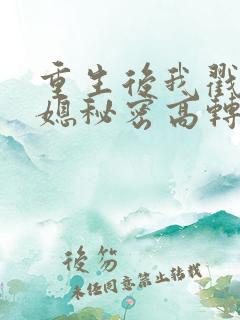 重生後我戳
媳秘密高轉
後笏
未經同意禁止轉載